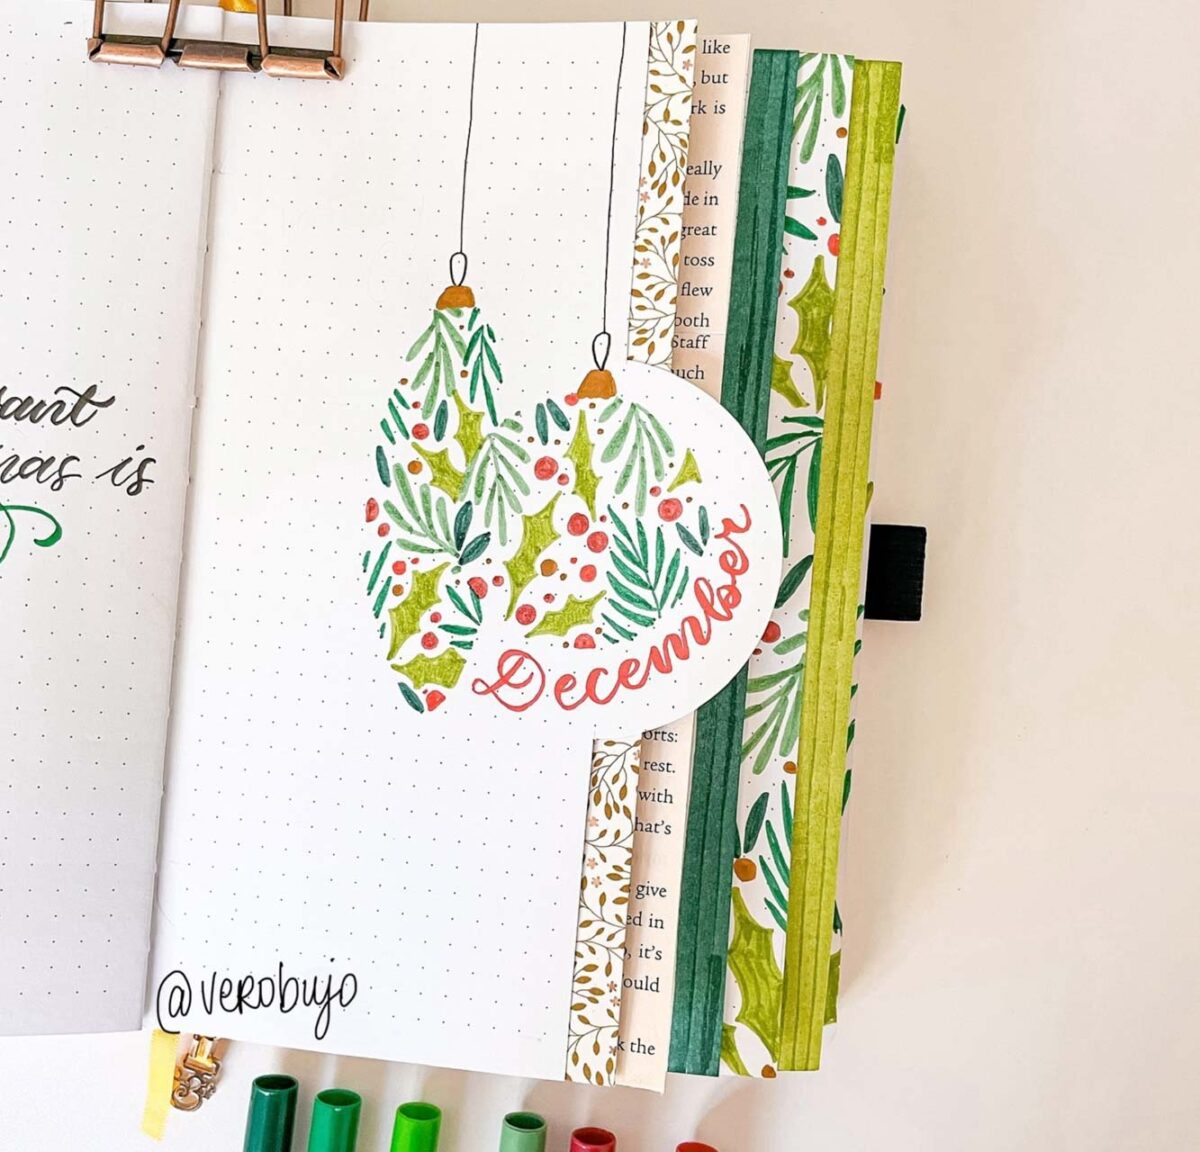 sant
mas is
December
@verobujo
like
, but
rk is
eally
de in
great
toss
flew
both
Staff
uch
orts:
rest.
with
hat's
give
ed in
, it's
ould
k the